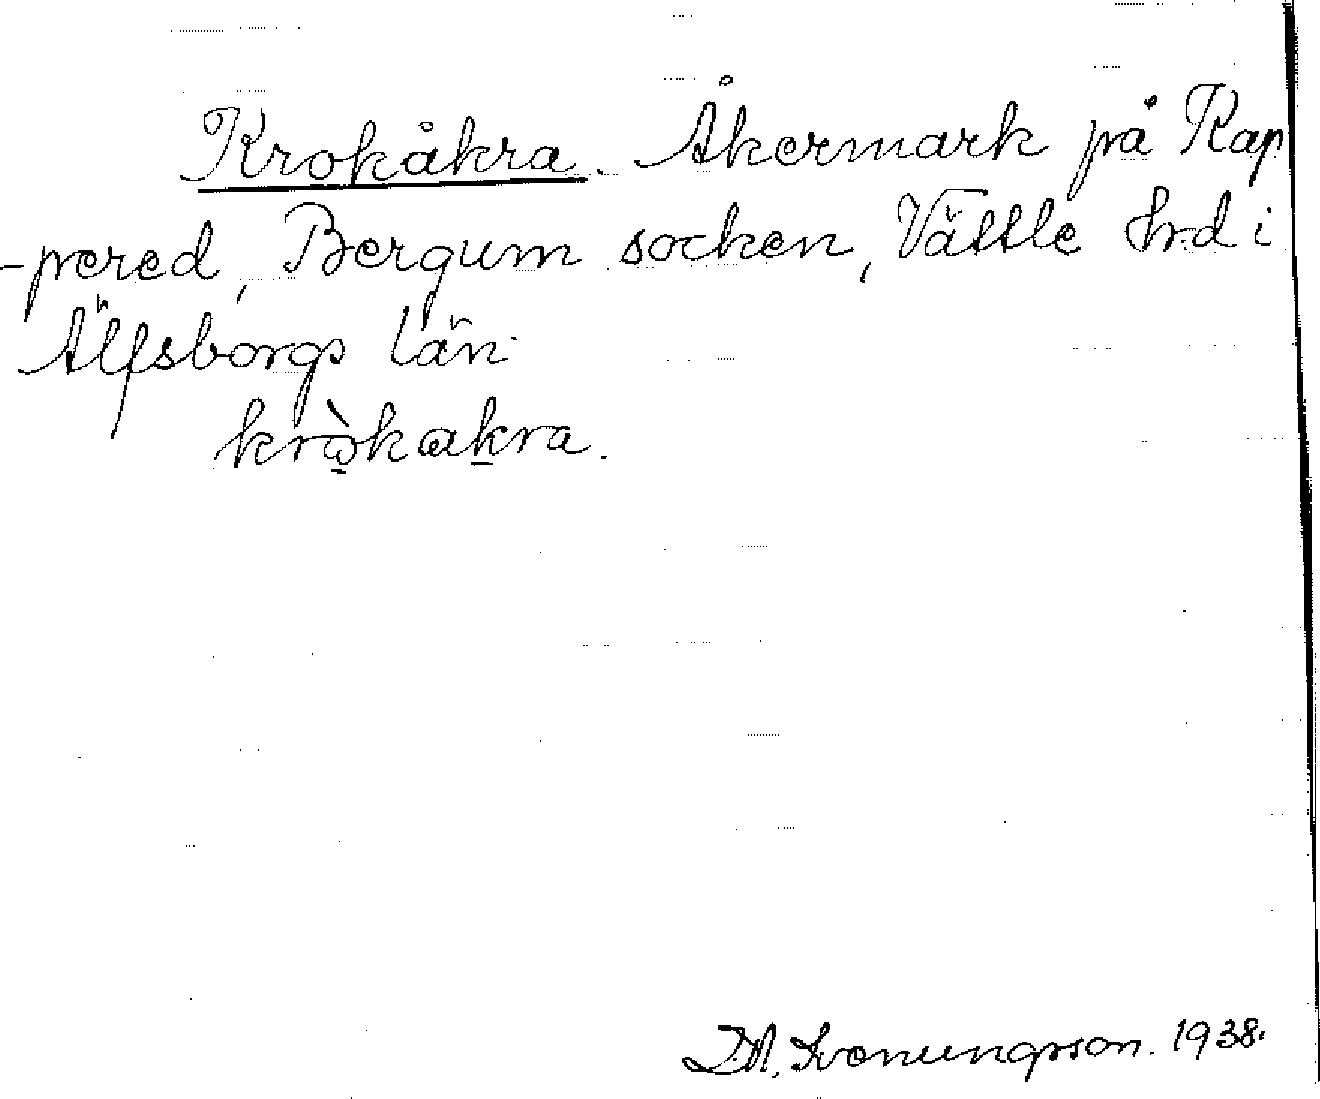 Krokåkra. Åkermark på Rap
-pered, Bergum socken, Vättle Hrd i
Älfsborgs län
krò̱kɑḵra.
Svenungsson. 1938.